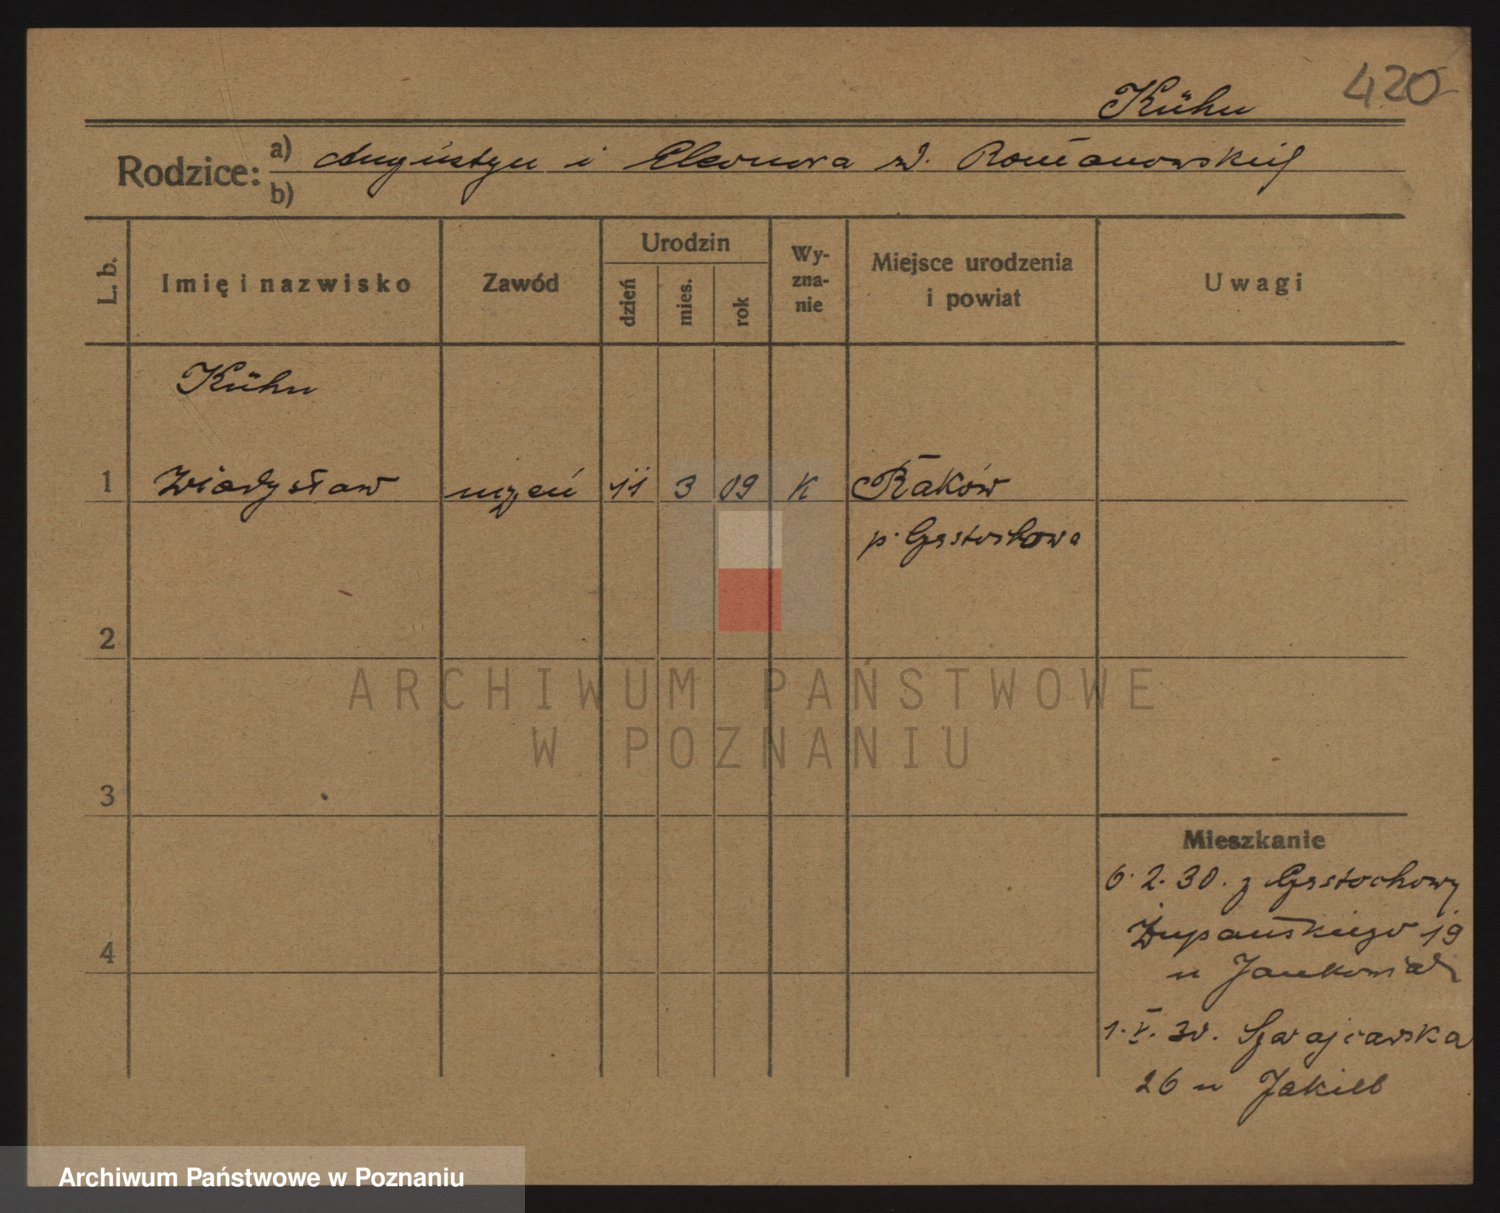 Kühn 420
Rodzice: a) Augustyn i Eleonora z d. Romanowskich
b)
L. b. Imię i nazwisko Zawód Urodzin dzień mies. rok Wyznanie Miejsce urodzenia i powiat Uwagi
Kühn
1 Władysław uczeń 11 3 09 K Raków
p. Częstochowa
2
ARCHIWUM PAŃSTWOWE
W POZNANIU
3
Mieszkanie
6.2.30. z Częstochowy
4 Żupańskiego 19
u Jankowiak
1.V.30. Szwajcarska
26 u Jakieb
Archiwum Państwowe w Poznaniu